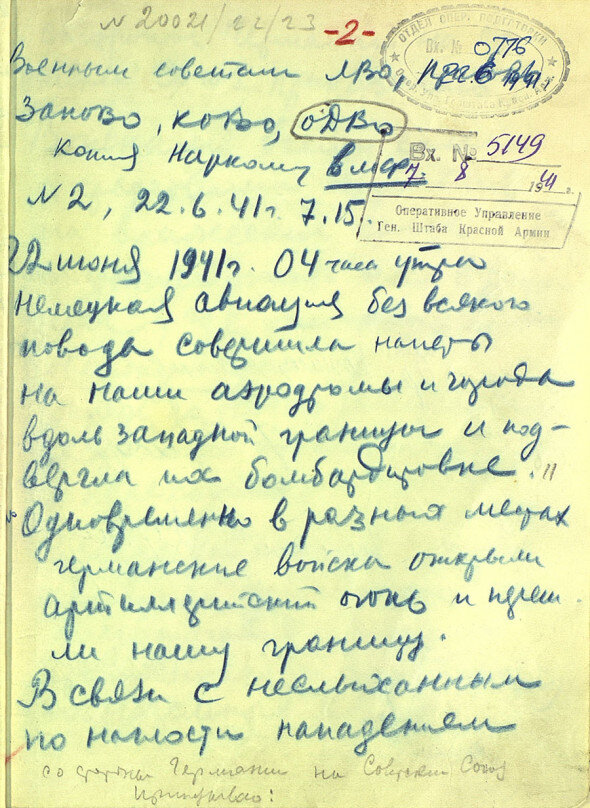 N 20021/22/23
-2-
ОТДЕЛ ОПЕР.
Вх. № 0776
Военным советам ЛВО, ПрибОВО,
ЗапОВО, КОВО, ОдВО
копия Наркому ВМФ
Вх. № 5149
7. 8 1941 г.
Оперативное Управление
Ген. Штаба Красной Армии
N 2, 22.6.41г. 7.15.
22 июня 1941г. 04 часа утра
немецкая авиация без всякого
повода совершила налеты
на наши аэродромы и города
вдоль западной границы и под-
вергла их бомбардировке.
Одновременно в разных местах
германские войска открыли
артиллерийский огонь и переш-
ли нашу границу.
В связи с неслыханным
по наглости нападением
со стороны Германии на Советский Союз
приказываю: